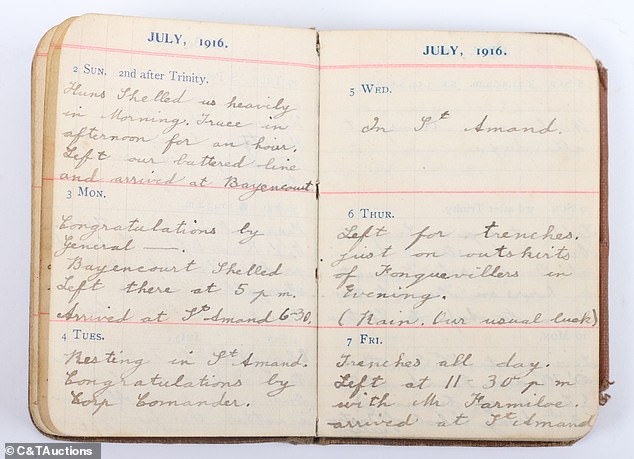 JULY, 1916.
2 SUN. 2nd after Trinity.
Huns Shelled us heavily
in Morning. Truce in
afternoon for an hour.
Left our battered line
and arrived at Bayencourt
3 MON.
Congratulations by
General —.
Bayencourt Shelled
Left there at 5 p.m.
Arrived at St Amand 6-30.
4 TUES.
Resting in St Amand.
Congratulations by
Corp Comander.
JULY, 1916.
5 WED.
In St Amand.
6 THUR.
Left for trenches.
just on outskirts
of Fonquevillers in
Evening.
(Rain. Our usual luck)
7 FRI.
Trenches all day.
Left at 11 30 p m
with Mr Farmiloe.
arrived at St Amand
© C&TAuctions